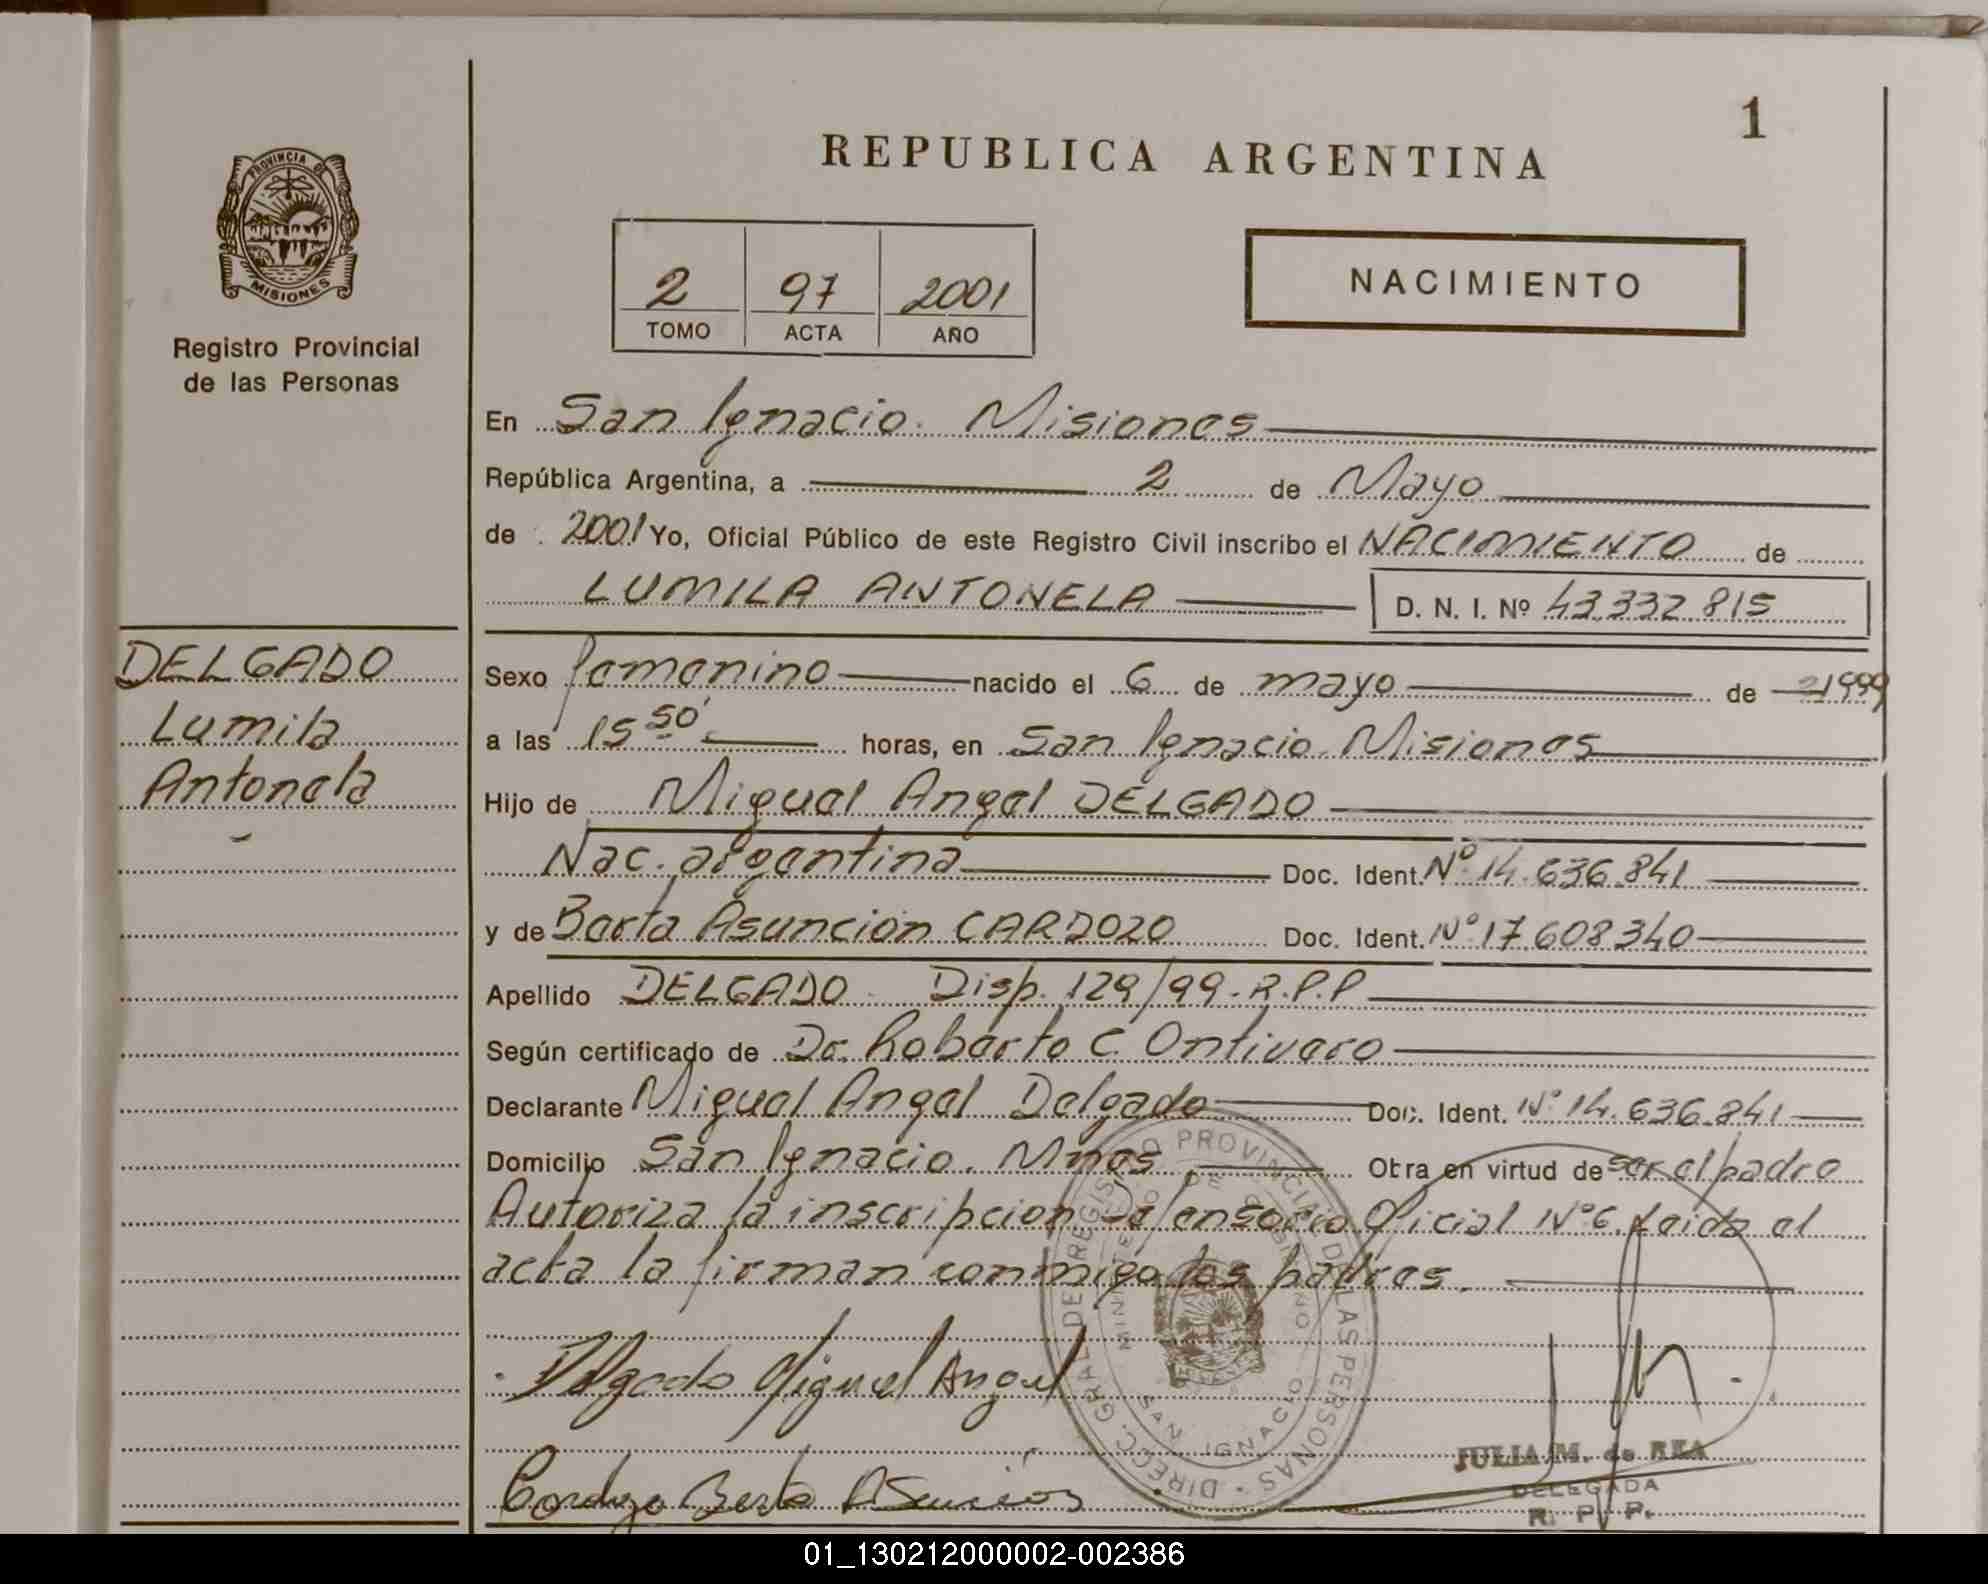 1
REPUBLICA ARGENTINA
PROVINCIA DE
MISIONES
Registro Provincial
de las Personas
2 97 2001
TOMO ACTA AÑO
NACIMIENTO
En San Ignacio. Misiones
República Argentina, a 2 de Mayo
de 2001 Yo, Oficial Público de este Registro Civil inscribo el NACIMIENTO de
LUMILA ANTONELA D. N. I. Nº 43.332.815
DELGADO
Lumila
Antonela
Sexo femenino nacido el 6 de mayo de 1999
a las 15 50' horas, en San Ignacio Misiones
Hijo de Miguel Angel DELGADO
Nac. argentina Doc. Ident. Nº 14.636.841
y de Berta Asunción CARDOZO Doc. Ident. Nº 17.608.340
Apellido DELGADO Disp. 129/99.R.P.P
Según certificado de Dr. Roberto C. Ontivero
Declarante Miguel Angel Delgado Doc. Ident. Nº 14.636.841
Domicilio San Ignacio. Mnes Obra en virtud de ser el padre
Autoriza la inscripcion Defensoria Oficial Nº 6. Leida el
acta la firman conmigo los padres.
Delgado Miguel Angel
Cardozo Berta Asunción
DIRECC. GRAL. DE REGISTRO PROVINCIAL DE LAS PERSONAS
MINISTERIO DE GOBIERNO
SAN IGNACIO
JULIA M. de REA
DELEGADA
R. P. P.
01_130212000002-002386